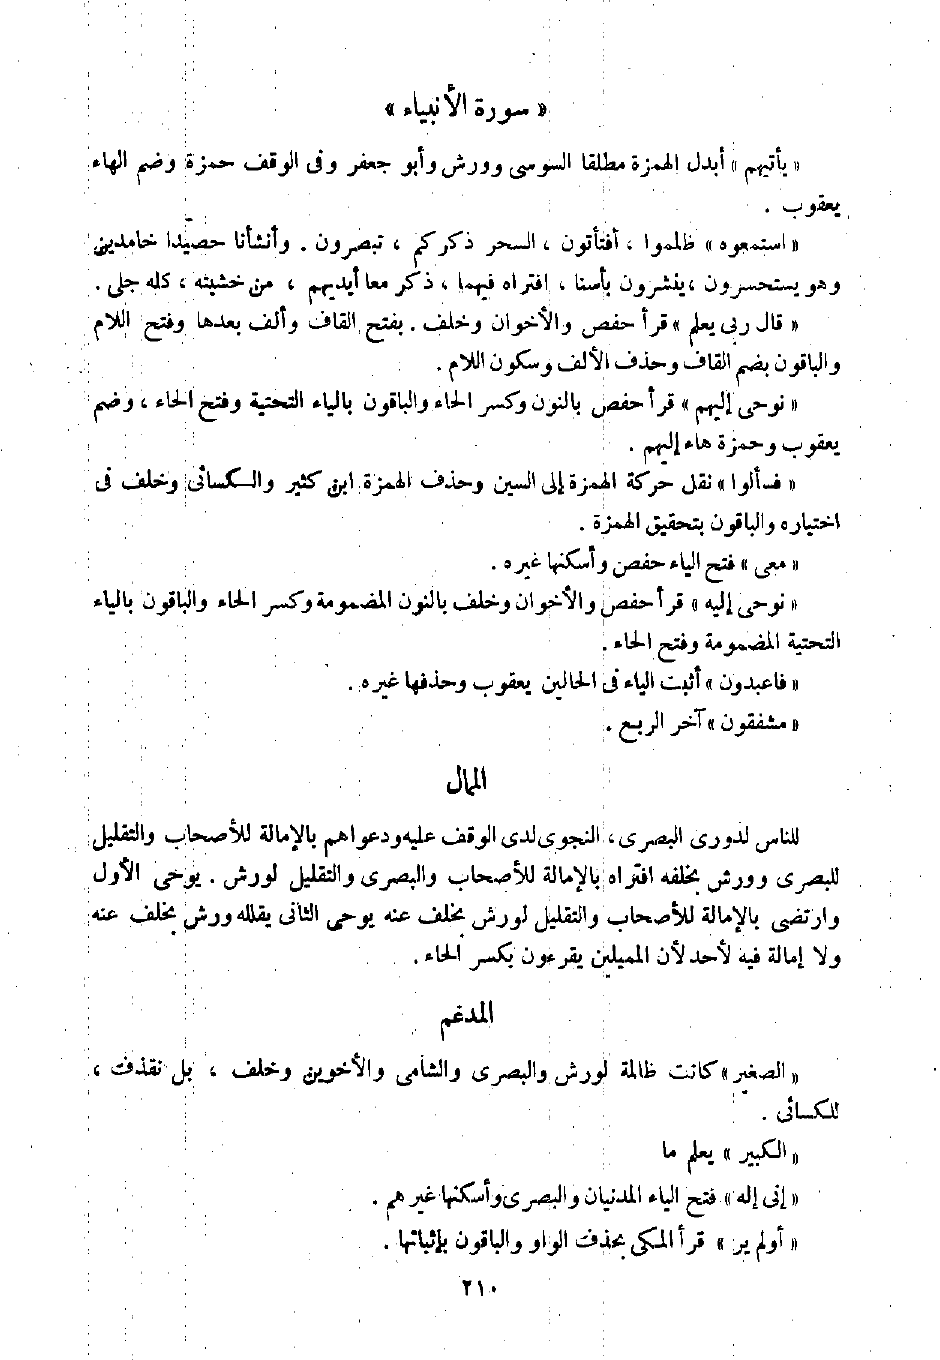 « سورة الأنبياء »
« يأتيهم » أبدل الهمزة مطلقا السوسى وورش وأبو جعفر وفى الوقف حمزة وضم الهاء
يعقوب .
« استمعوه » ظلموا ، أفتأتون ، السحر ذكركم ، تبصرون . وأنشأنا حصيدا خامدين
وهو يستحسرون ، ينشرون بأسنا ، افتراه فيهما ، ذكر معا أيديهم ، من خشيته ، كله جلى .
« قال ربى يعلم » قرأ حفص والأخوان وخلف . بفتح القاف وألف بعدها وفتح اللام
والباقون بضم القاف وحذف الألف وسكون اللام .
« نوحى إليهم » قرأ حفص بالنون وكسر الحاء والباقون بالياء التحتية وفتح الحاء ، وضم
يعقوب وحمزة هاء إليهم .
« فسألوا » نقل حركة الهمزة إلى السين وحذف الهمزة ابن كثير والكسائى وخلف فى
اختياره والباقون بتحقيق الهمزة .
« معى » فتح الياء حفص وأسكنها غيره .
« نوحى إليه » قرأ حفص والأخوان وخلف بالنون المضمومة وكسر الحاء والباقون بالياء
التحتية المضمومة وفتح الحاء .
« فاعبدون » أثبت الياء فى الحالين يعقوب وحذفها غيره .
« مشفقون » آخر الربع .
الممال
للناس لدورى البصرى ، النجوى لدى الوقف عليه ودعواهم بالإمالة للأصحاب والتقليل
للبصرى وورش بخلفه افتراه بالإمالة للأصحاب والبصرى والتقليل لورش . يوحى الأول
وارتضى بالإمالة للأصحاب والتقليل لورش بخلف عنه يوحى الثانى يقلله ورش بخلف عنه
ولا إمالة فيه لأحد لأن المميلين يقرءون بكسر الحاء .
المدغم
« الصغير » كانت ظالمة لورش والبصرى والشامى والأخوين وخلف ، بل نقذف ،
للكسائى .
« الكبير » يعلم ما
« إنى إله » فتح الياء المدنيان والبصرى وأسكنها غيرهم .
« أولم ير » قرأ المكى بحذف الواو والباقون بإثباتها .
٢١٠